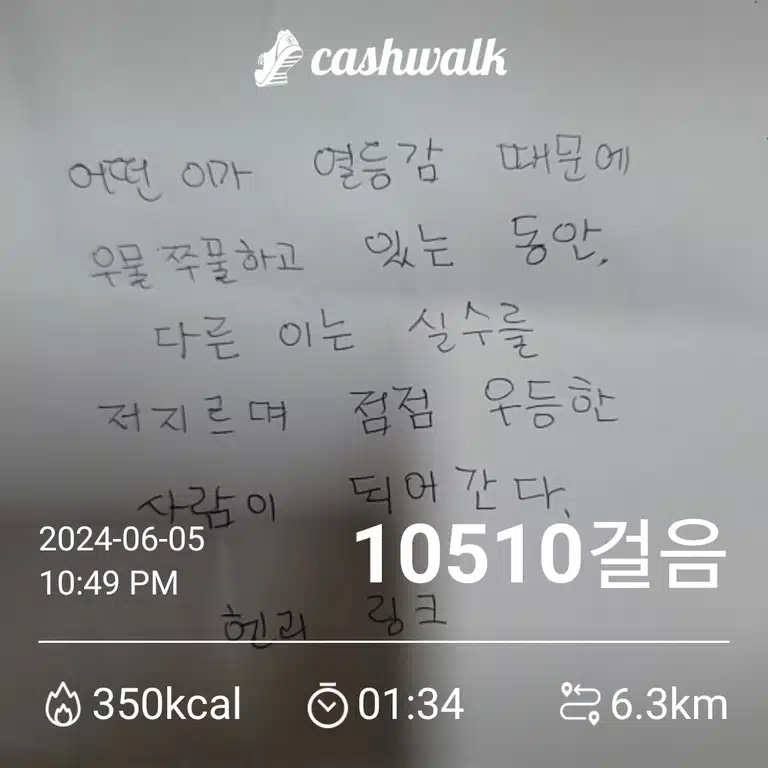 cashwalk
어떤 이가 열등감 때문에
우물쭈물하고 있는 동안,
다른 이는 실수를
저지르며 점점 우등한
사람이 되어간다.
2024-06-05
10:49 PM
10510걸음
헨리 링크
350kcal 01:34 6.3km